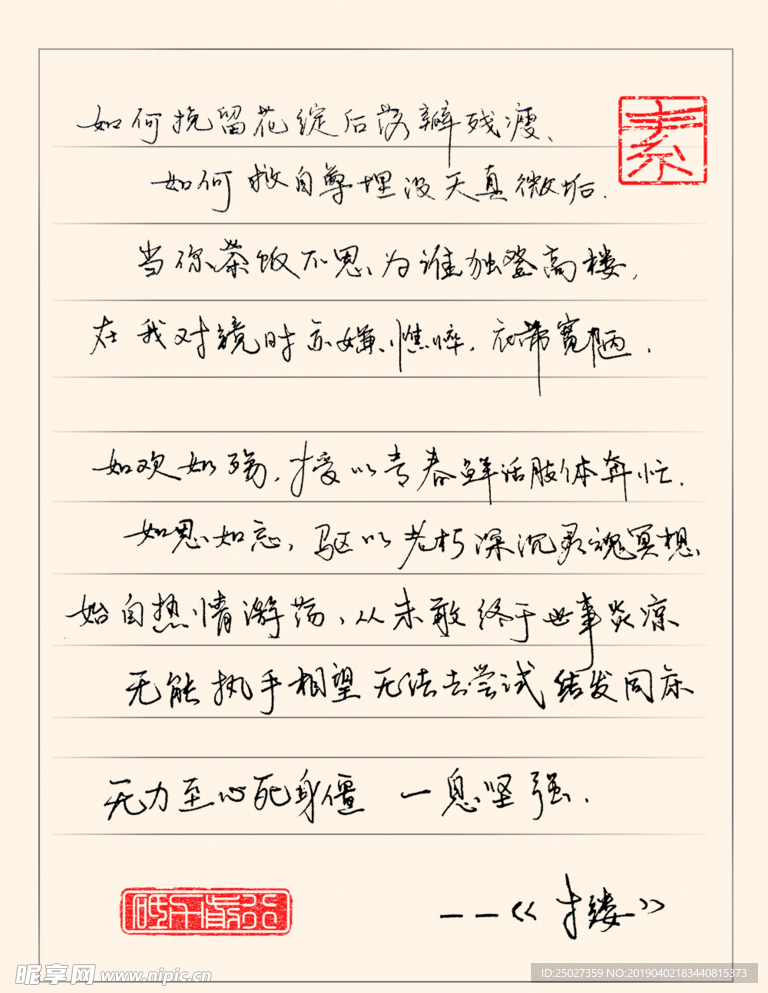 如何挽留花绽后落瓣残瘦、
素
如何救自尊埋没天真微垢.
当你茶饭不思、为谁独登高楼,
在我对镜时亦嫌、憔悴,衣带宽陋.
如欢如殇,授以青春鲜活肢体奔忙.
如思如忘,驱以老朽深沉灵魂冥想、
始自热情激荡、从未敢终于世事炎凉
无能执手相望 无法去尝试结发同床
无力至心死身僵 一息坚强.
——《褴褛》
昵享网 www.nipic.cn
ID:25027359 NO:20190402183440815373